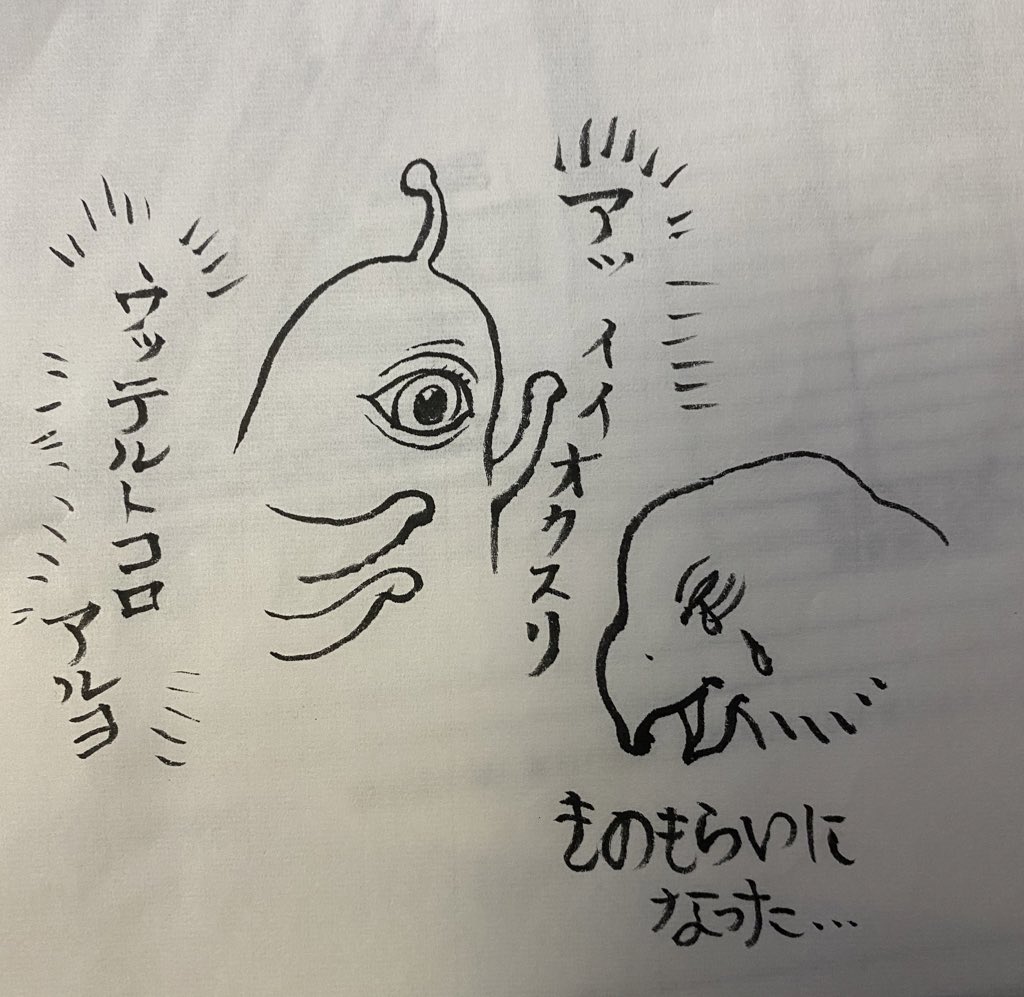 アッ イイ
オクスリ
ウッテルトコロ
アルヨ
きのもらいに
なった…